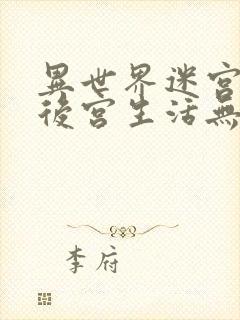 異世界迷宮
後宮生活無
李府